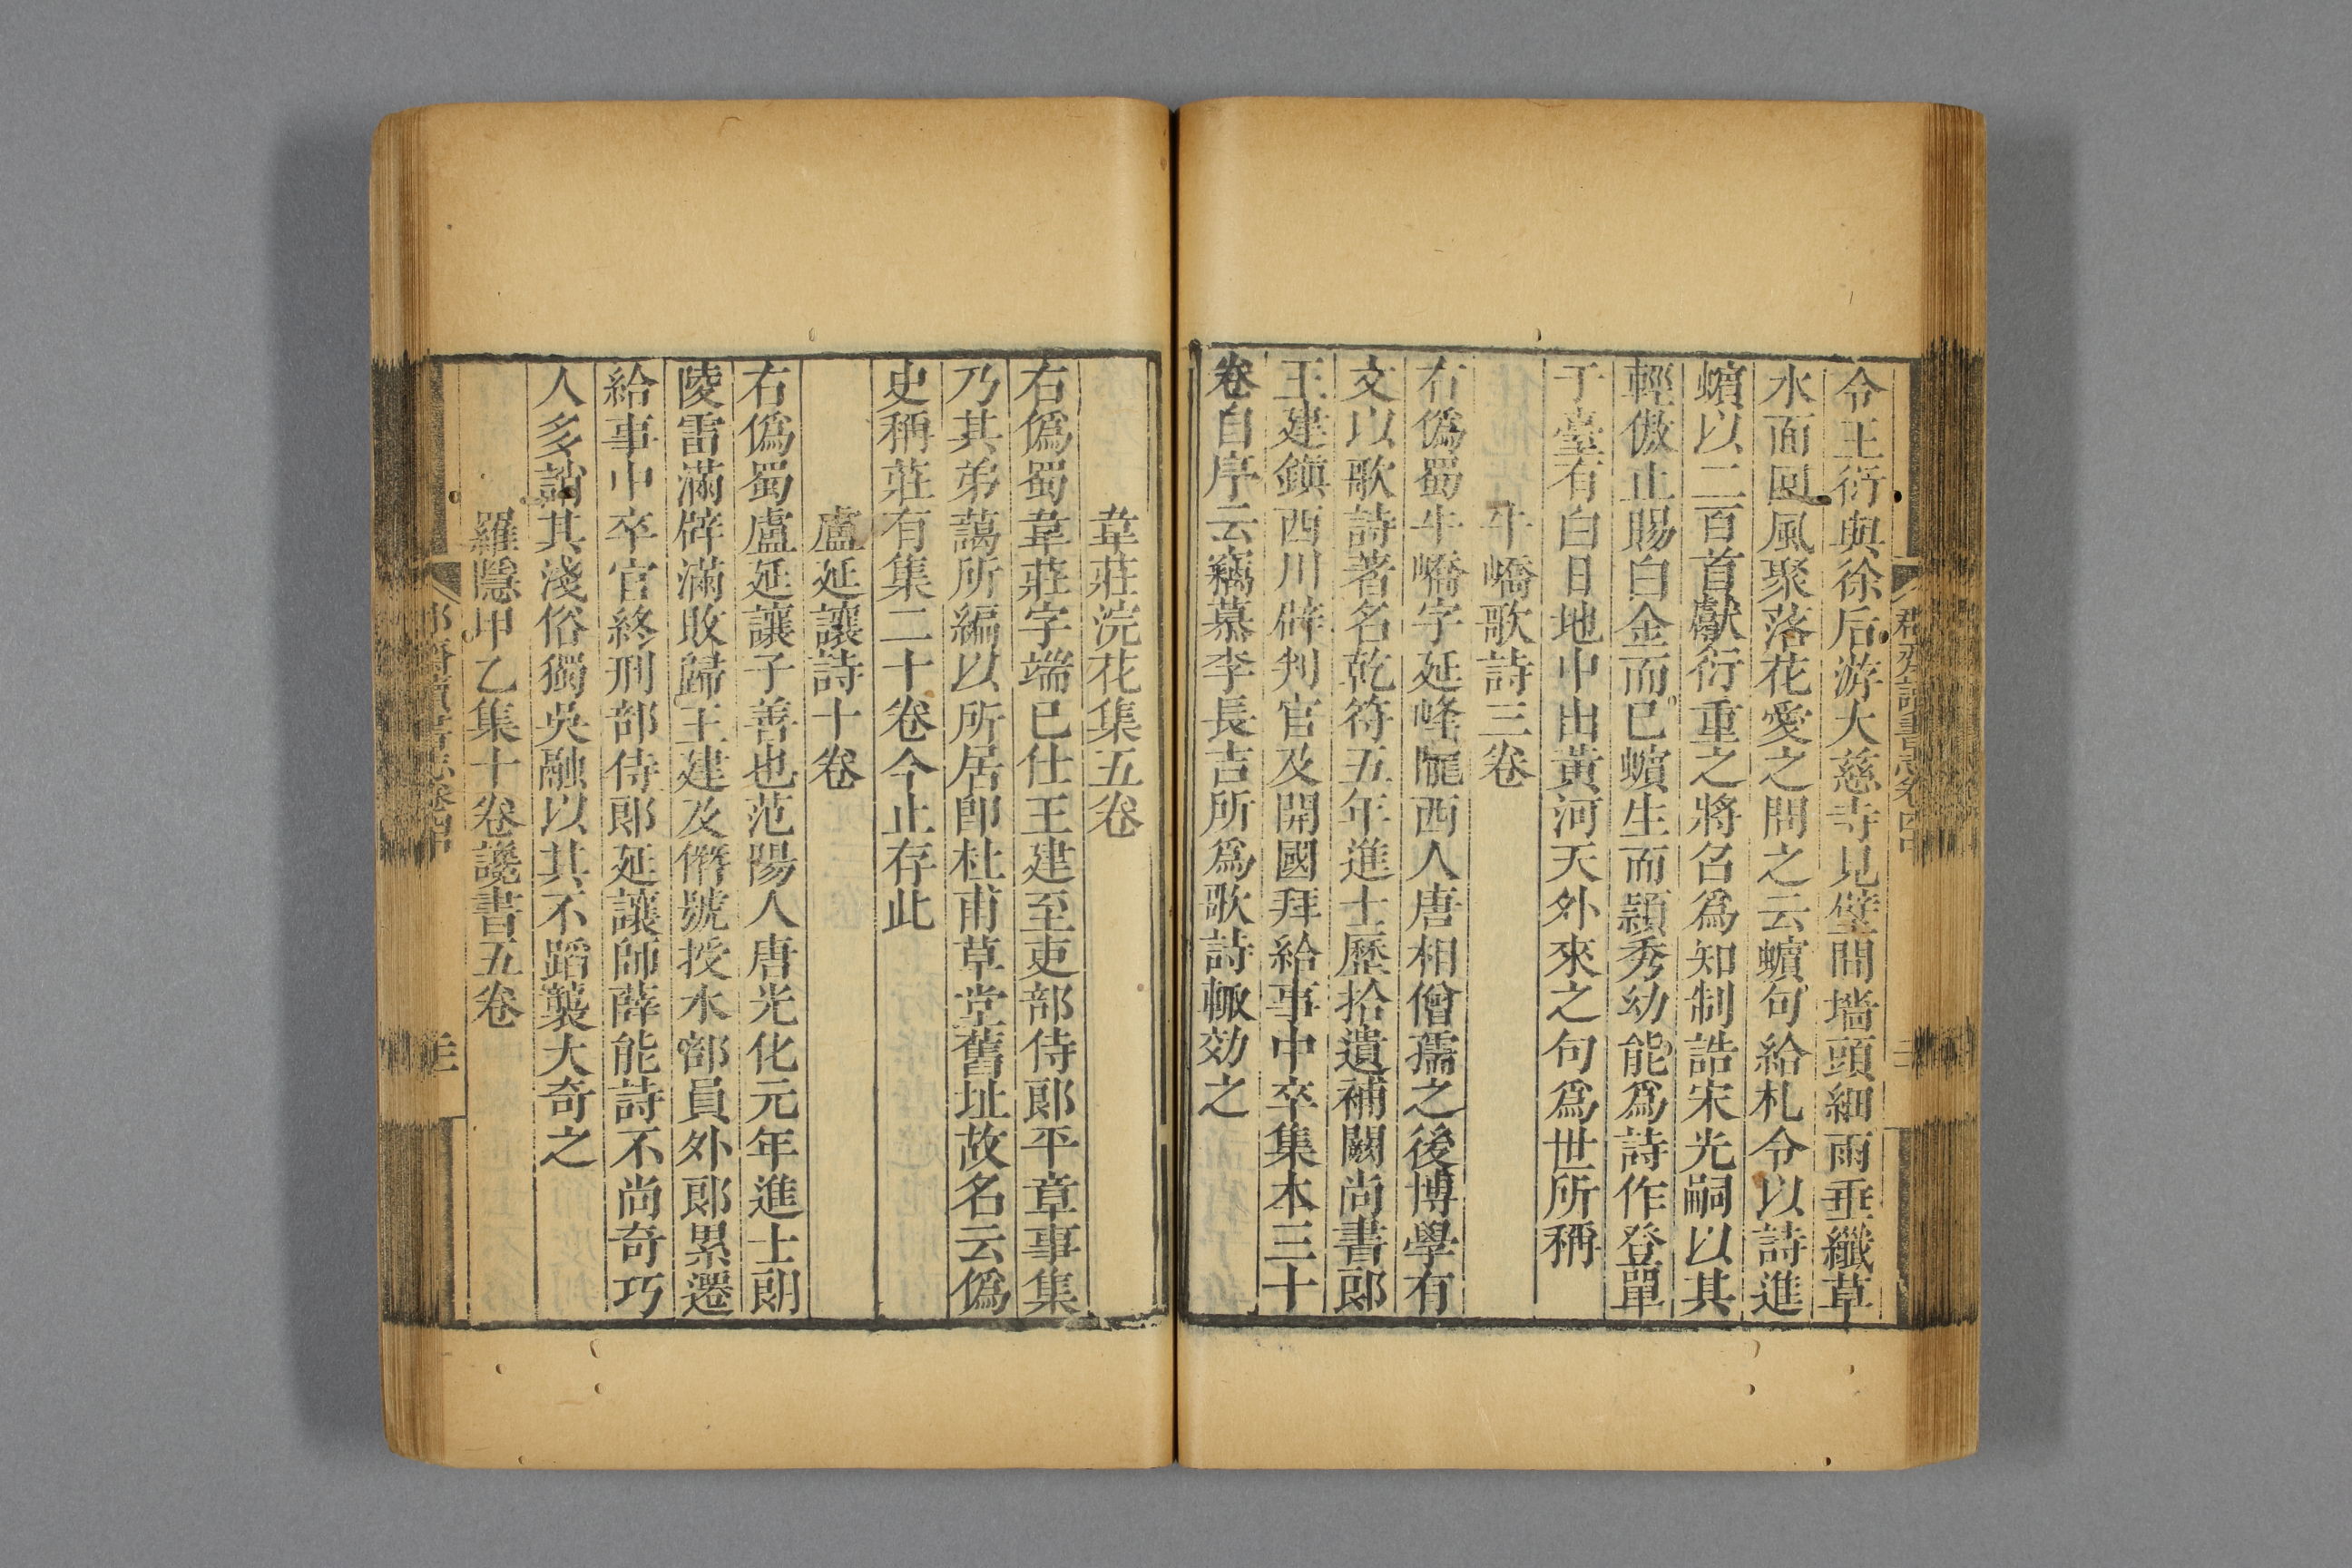 令王衍與徐后游大慈寺見壁間墻頭細雨垂纖草
水面回風聚落花愛之問之云蠙句給札令以詩進
蠙以二百首獻衍重之將召爲知制誥宋光嗣以其
輕傲止賜白金而已蠙生而穎秀幼能爲詩作登單
于臺有白日地中出黃河天外來之句爲世所稱
牛嶠歌詩三卷
右僞蜀牛嶠字延峰隴西人唐相僧孺之後博學有
文以歌詩著名乾符五年進士歷拾遺補闕尚書郎
王建鎮西川辟判官及開國拜給事中卒集本三十
卷自序云竊慕李長吉所爲歌詩輙効之
韋莊浣花集五卷
右僞蜀韋莊字端已仕王建至吏部侍郎平章事集
乃其弟藹所編以所居卽杜甫草堂舊址故名云僞
史稱莊有集二十卷今止存此
盧延讓詩十卷
右僞蜀盧延讓子善也范陽人唐光化元年進士朗
陵雷滿辟滿敗歸王建及僭號授水部員外郎累遷
給事中卒官終刑部侍郎延讓師薛能詩不尚奇巧
人多誚其淺俗獨吳融以其不蹈襲大奇之
羅隱甲乙集十卷讒書五卷